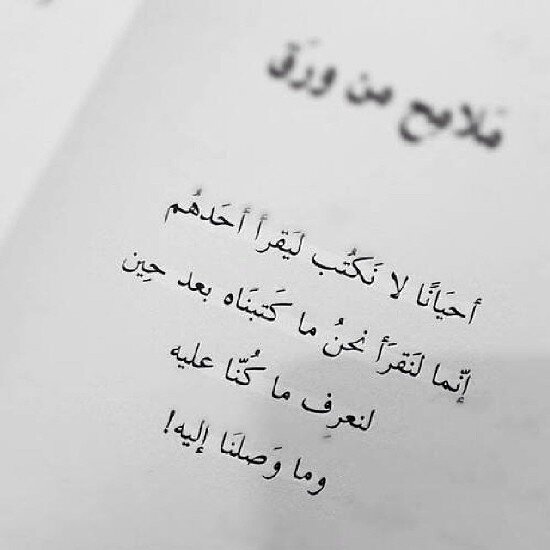 مَلامِح من وَرَق
أحيَانًا لا نَكتُب ليَقرأ أحَدهُم
إنّما لنَقرَأ نحنُ ما كَتبنَاه بعد حِين
لنعرِف ما كُنّا عليه
وما وَصلنَا إليه!